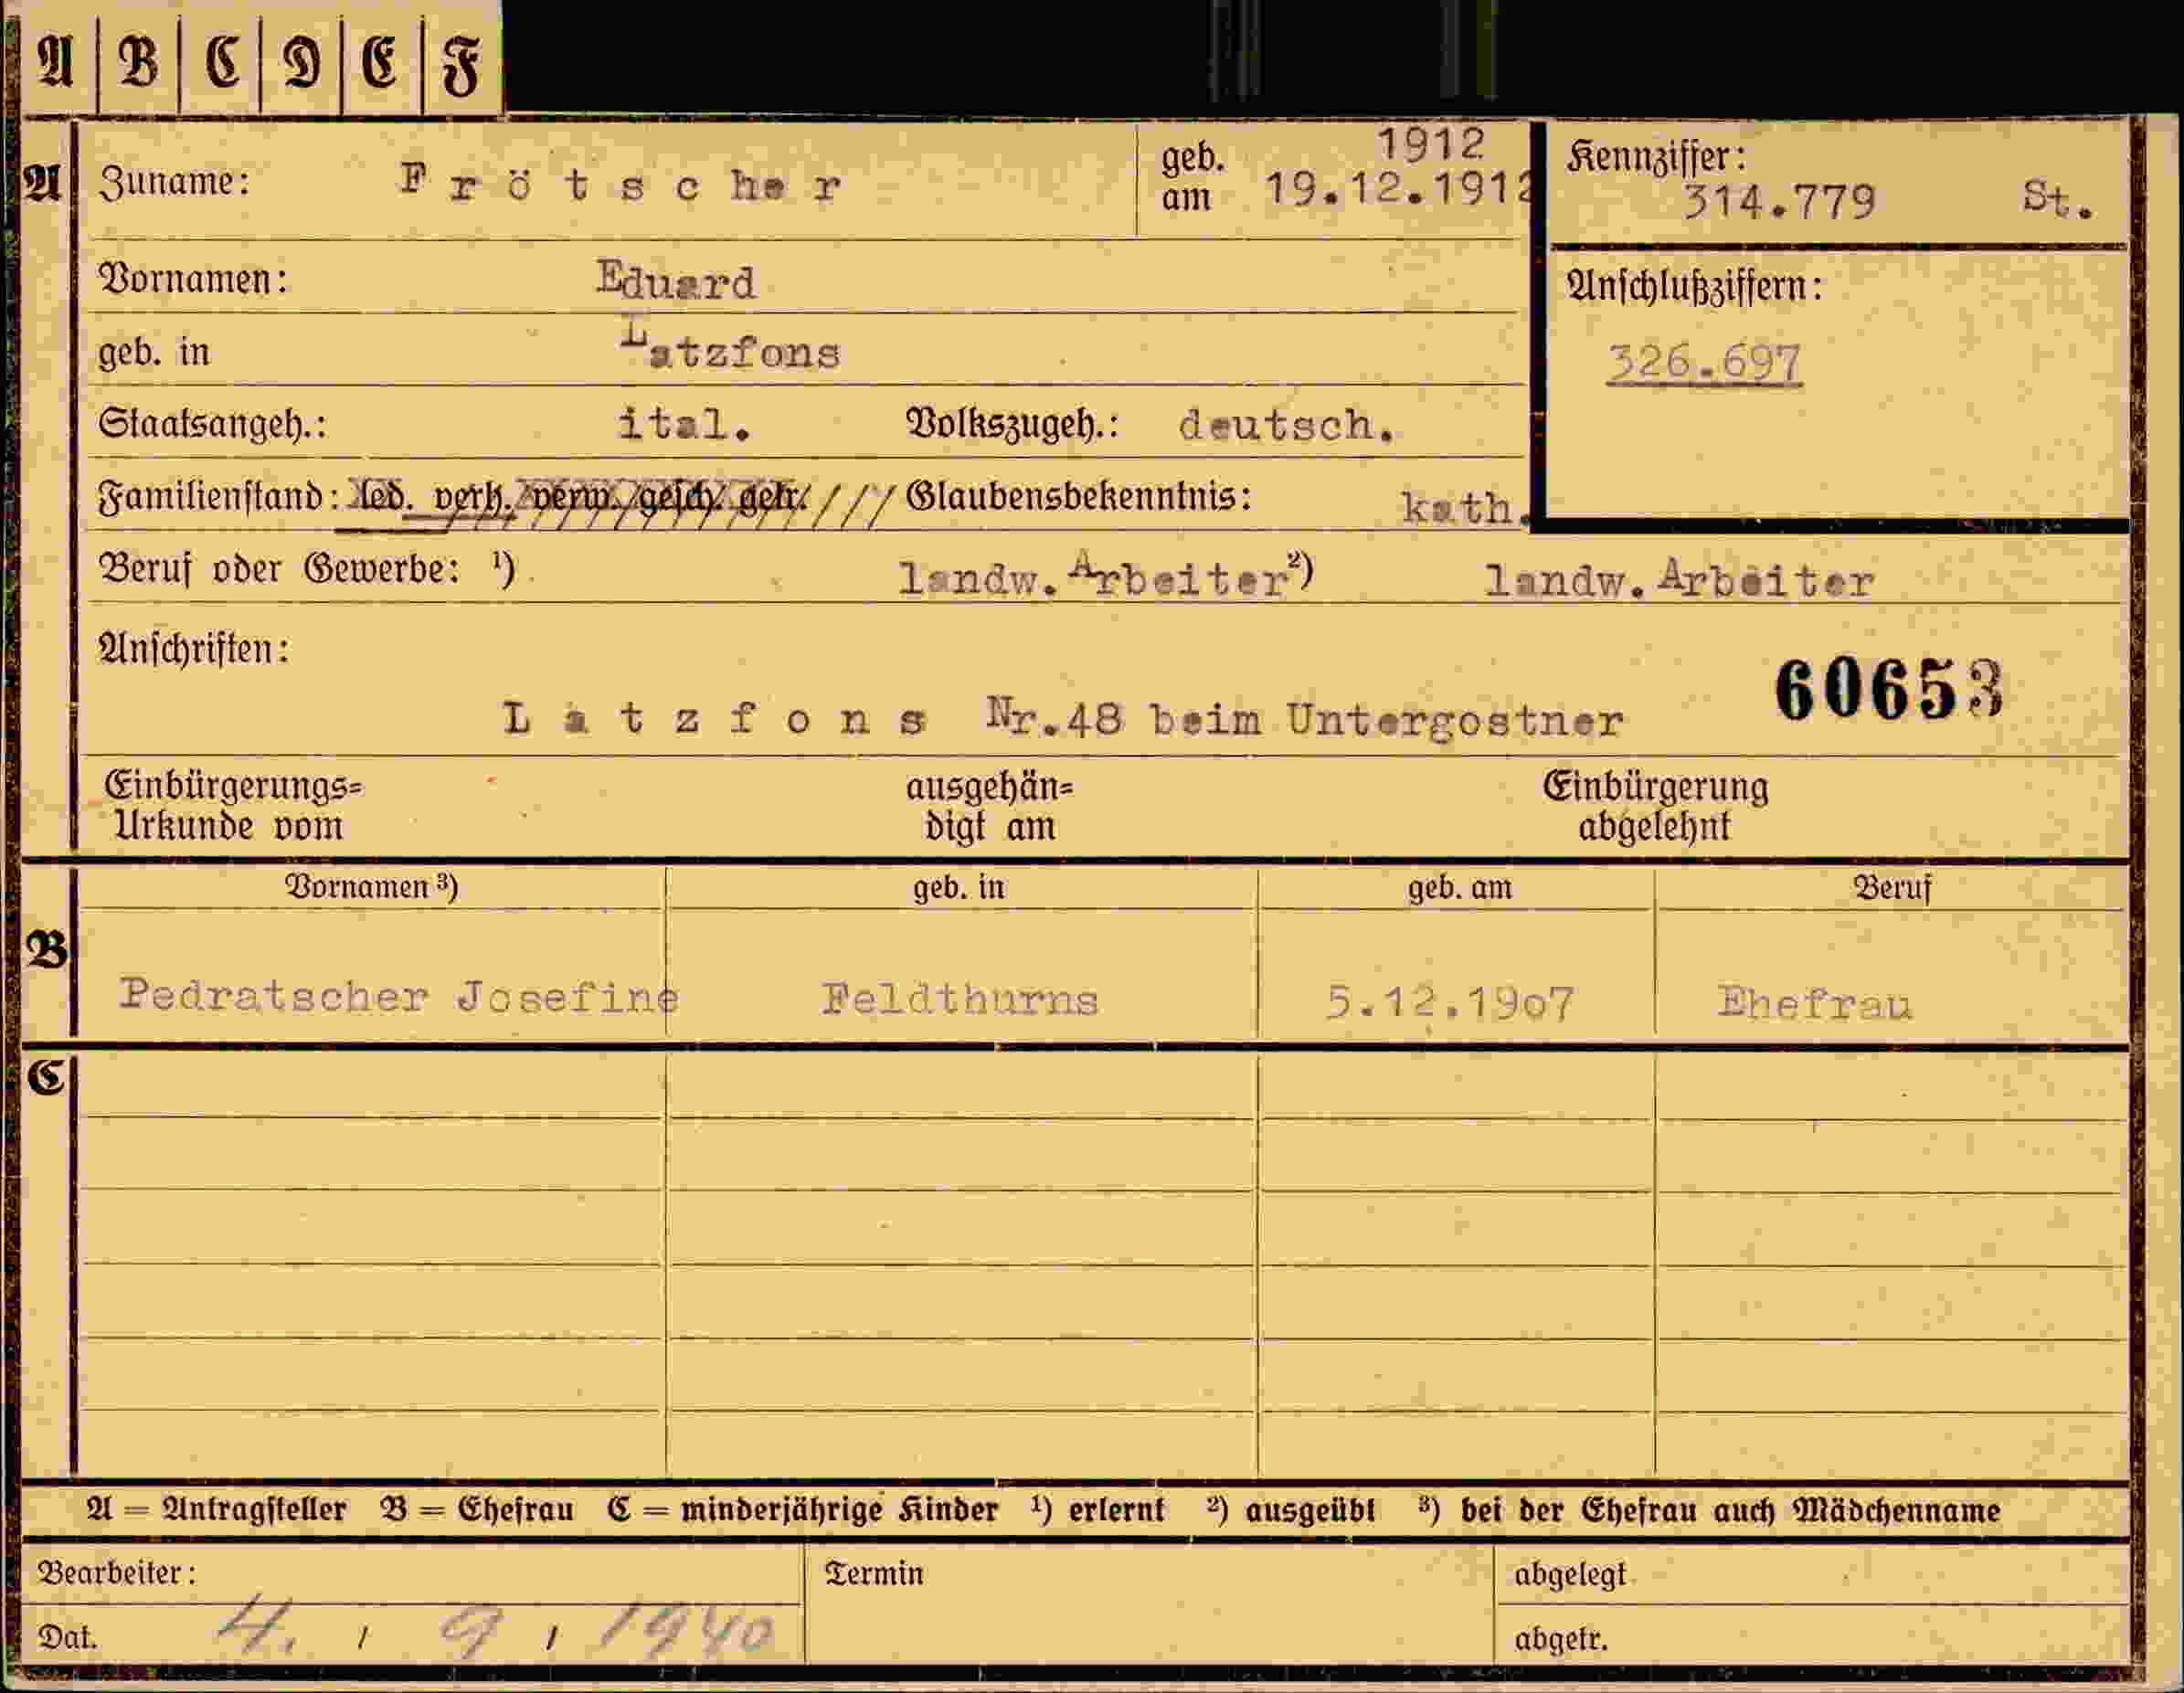 A B C D E F
A Zuname: Frötscher geb. am 1912 19.12.1912 Kennziffer: 314.779 St.
Vornamen: Eduard
Anschlußziffern:
geb. in Latzfons
326.697
Staatsangeh.: ital. Volkszugeh.: deutsch.
Familienstand: led. verh. verw. gesch. getr. Glaubensbekenntnis: kath.
Beruf oder Gewerbe: ¹) landw. Arbeiter ²) landw. Arbeiter
Anschriften:
60653
Latzfons Nr.48 beim Untergostner
Einbürgerungs= ausgehän= Einbürgerung
Urkunde vom digt am abgelehnt
Vornamen ³) geb. in geb. am Beruf
B
Pedratscher Josefine Feldthurns 5.12.1907 Ehefrau
C
A = Antragsteller B = Ehefrau C = minderjährige Kinder ¹) erlernt ²) ausgeübt ³) bei der Ehefrau auch Mädchenname
Bearbeiter: Termin abgelegt
Dat. 4. / 9 / 1940 abgetr.